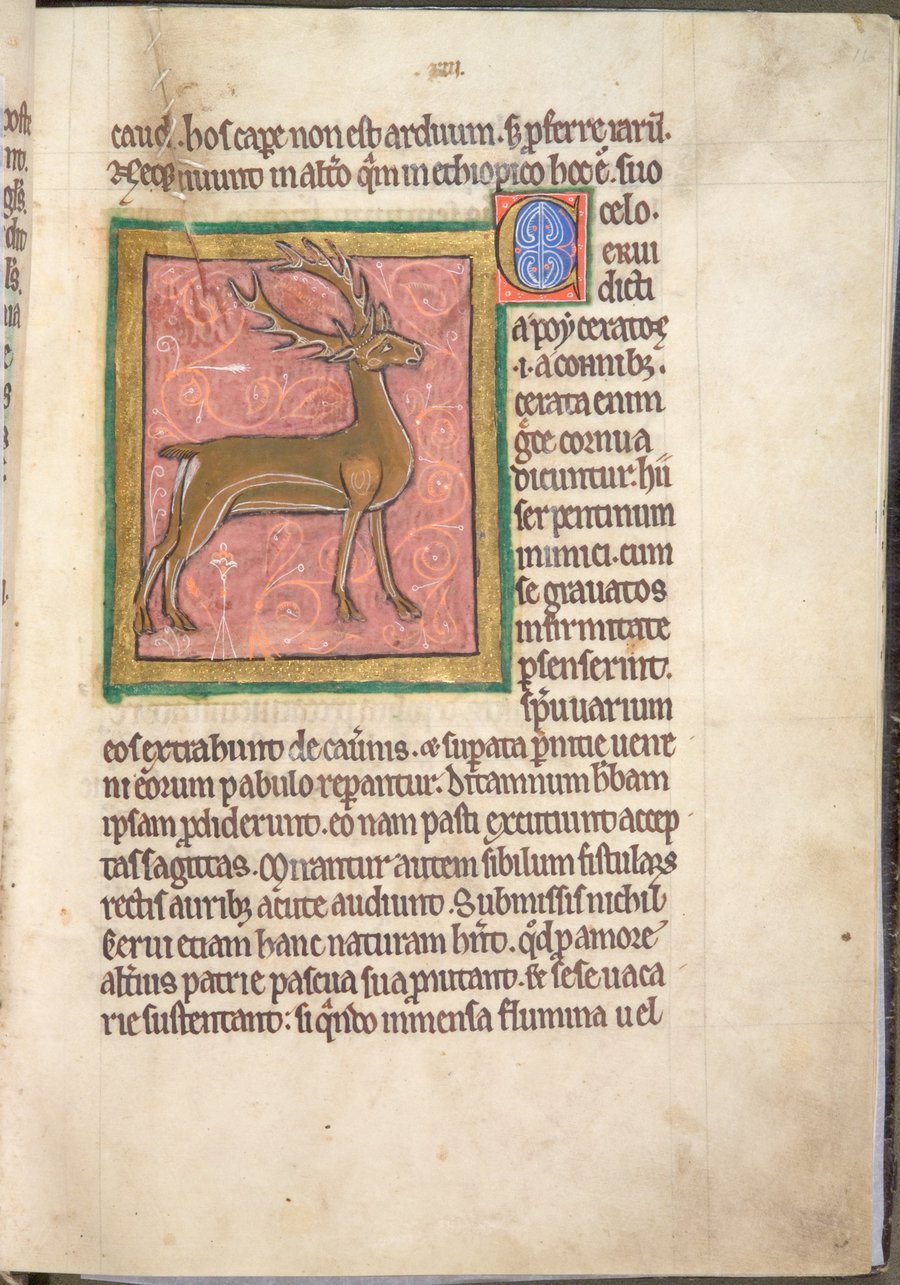 .xiii.
caud̄. hos cape non est arduum. s; p̄ferre raril.
Neq; uiuunt in alt̄o qͣm in ethiopico hoc ē. suo
celo.
CERUI
dicti
a poy ceratoꝝ
.i. a cornibꝫ.
cerata enim
gͤce cornua
dicuntur. hii
serpentinum
inimici. cum
se grauatos
infirmitate
ꝑsenserint.
sp̄u uarium
eos extrahunt de cau̾nis. ⁊ suꝑata ꝑnitie uene
ni eorum pabulo reꝑantur. Ditamnum h̾bam
ipsam ꝓdiderunt. eo nam pasti excutiunt accep
tas sagittas. Mirantur autem sibilum fistulaꝝ
rectis auribꝫ acute audiunt. Submissis nichil
Cerui etiam hanc naturam hn̄t. qd̓ ꝓ amore
alt̾ius patrie pascua sua ꝑmutant. ⁊ sese uica
rie sustentant: si qͣndo inmensa flumina uel